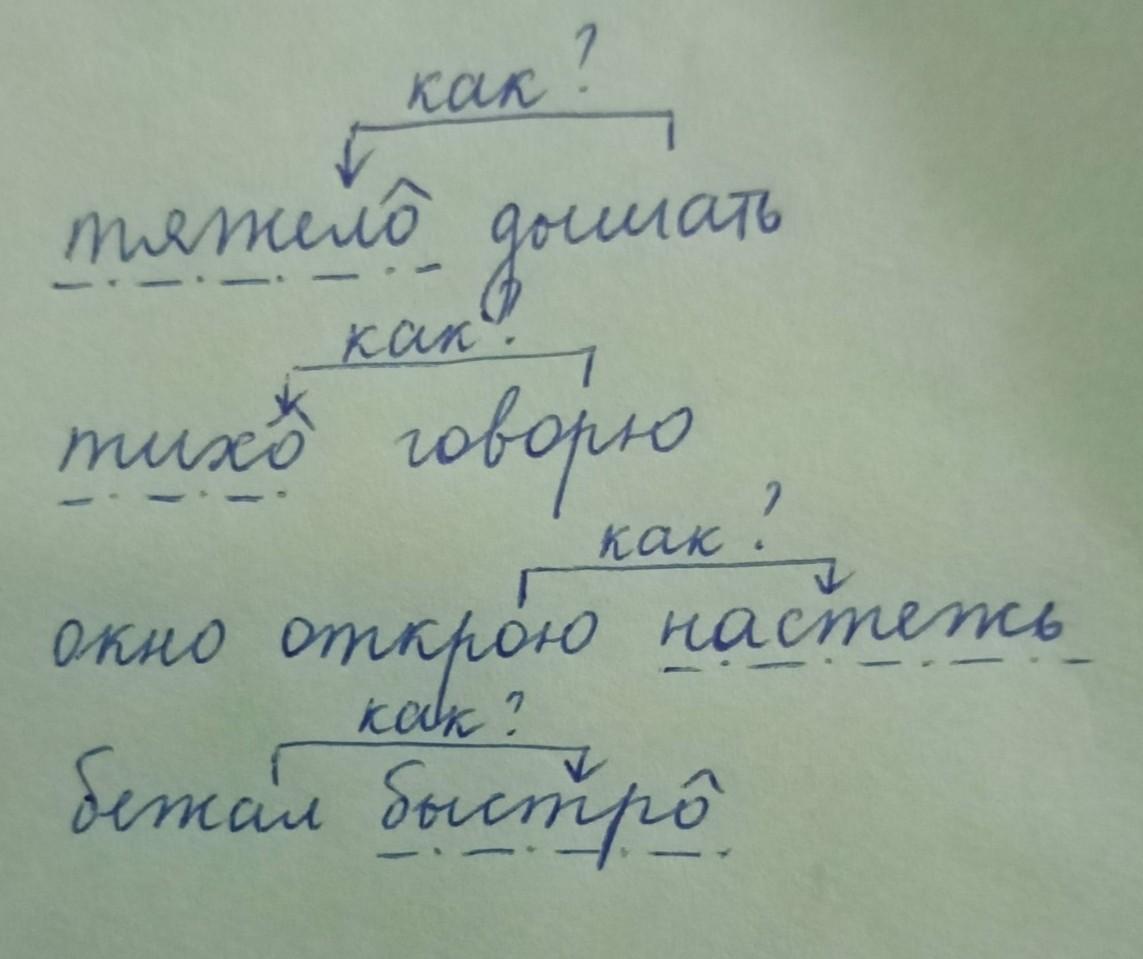 как?
тяжело дышать
как?
тихо говорю
как?
окно открою настежь
как?
бежал быстро